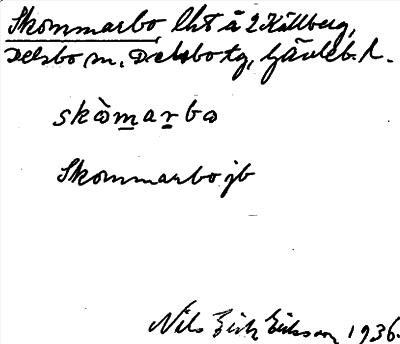 Skommarbo, lht å 2 Källberg,
Delsbo sn, Delsbo tg, Gävleb. l.
skòmarbo
Skommarbo jb
Nils Erik Eriksson 1936.